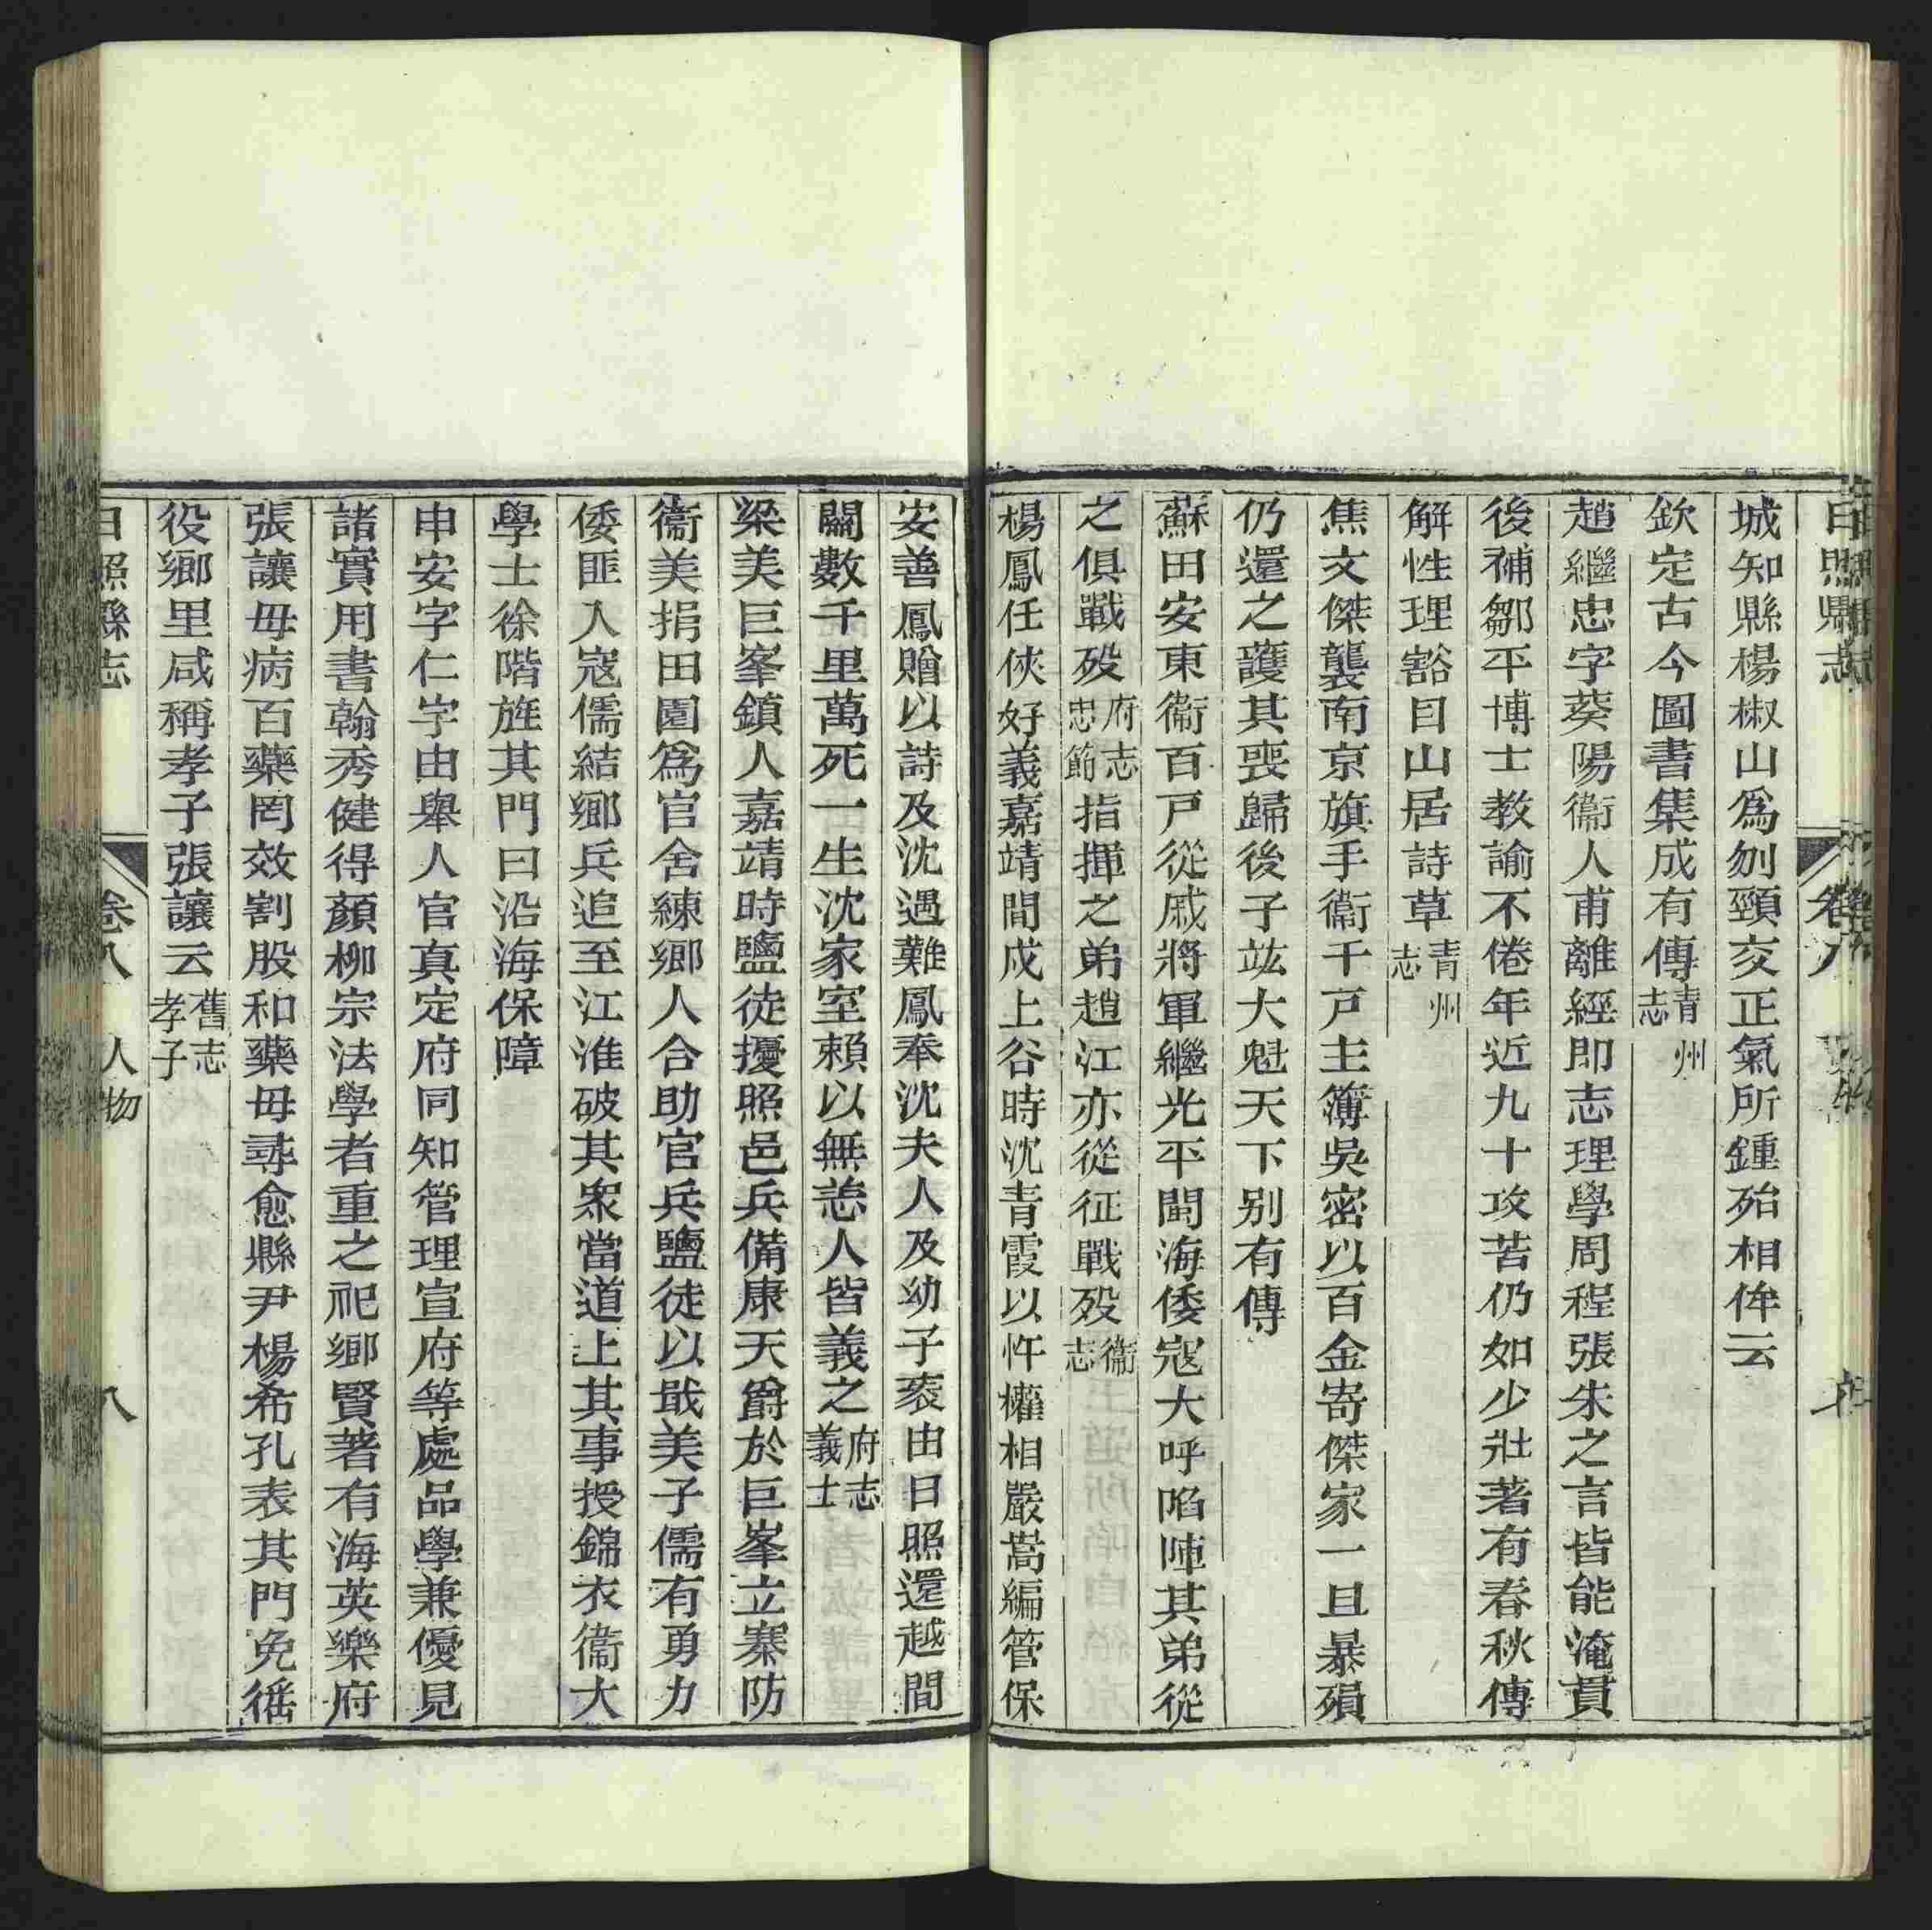 日照縣志 卷八
城知縣楊椒山為刎頸交正氣所鍾殆相侔云
欽定古今圖書集成有傳青州志
趙繼忠字葵陽衞人甫離經即志理學周程張朱之言皆能淹貫
後補鄒平博士教諭不倦年近九十攻苦仍如少壯著有春秋傳
解性理豁目山居詩草青州志
焦文傑襲南京旗手衞千戸主簿吳密以百金寄傑家一旦暴殞
仍還之護其喪歸後子竑大魁天下别有傳
蘇田安東衞百戸從戚將軍繼光平閩海倭寇大呼陷陣其弟從
之俱戰殁府志忠節指揮之弟趙江亦從征戰殁衞志
楊鳳任俠好義嘉靖間戍上谷時沈青霞以忤權相嚴嵩編管保
安善鳳贈以詩及沈遇難鳳奉沈夫人及幼子袠由日照還越間
關數千里萬死一生沈家室頼以無恙人皆義之府志義士
梁美巨峯鎮人嘉靖時鹽徒擾照邑兵備康天爵於巨峯立寨防
衞美捐田園為官舍練鄉人合助官兵鹽徒以戢美子儒有勇力
倭匪入寇儒結鄉兵追至江淮破其衆當道上其事授錦衣衞大
學士徐階旌其門曰沿海保障
申安字仁宇由舉人官真定府同知管理宣府等處品學兼優見
諸實用書翰秀健得顏柳宗法學者重之祀鄉賢著有海英樂府
張讓母病百藥罔效割股和藥母尋愈縣尹楊希孔表其門免徭
役鄉里咸稱孝子張讓云舊志孝子
日照縣志 卷八 人物 八